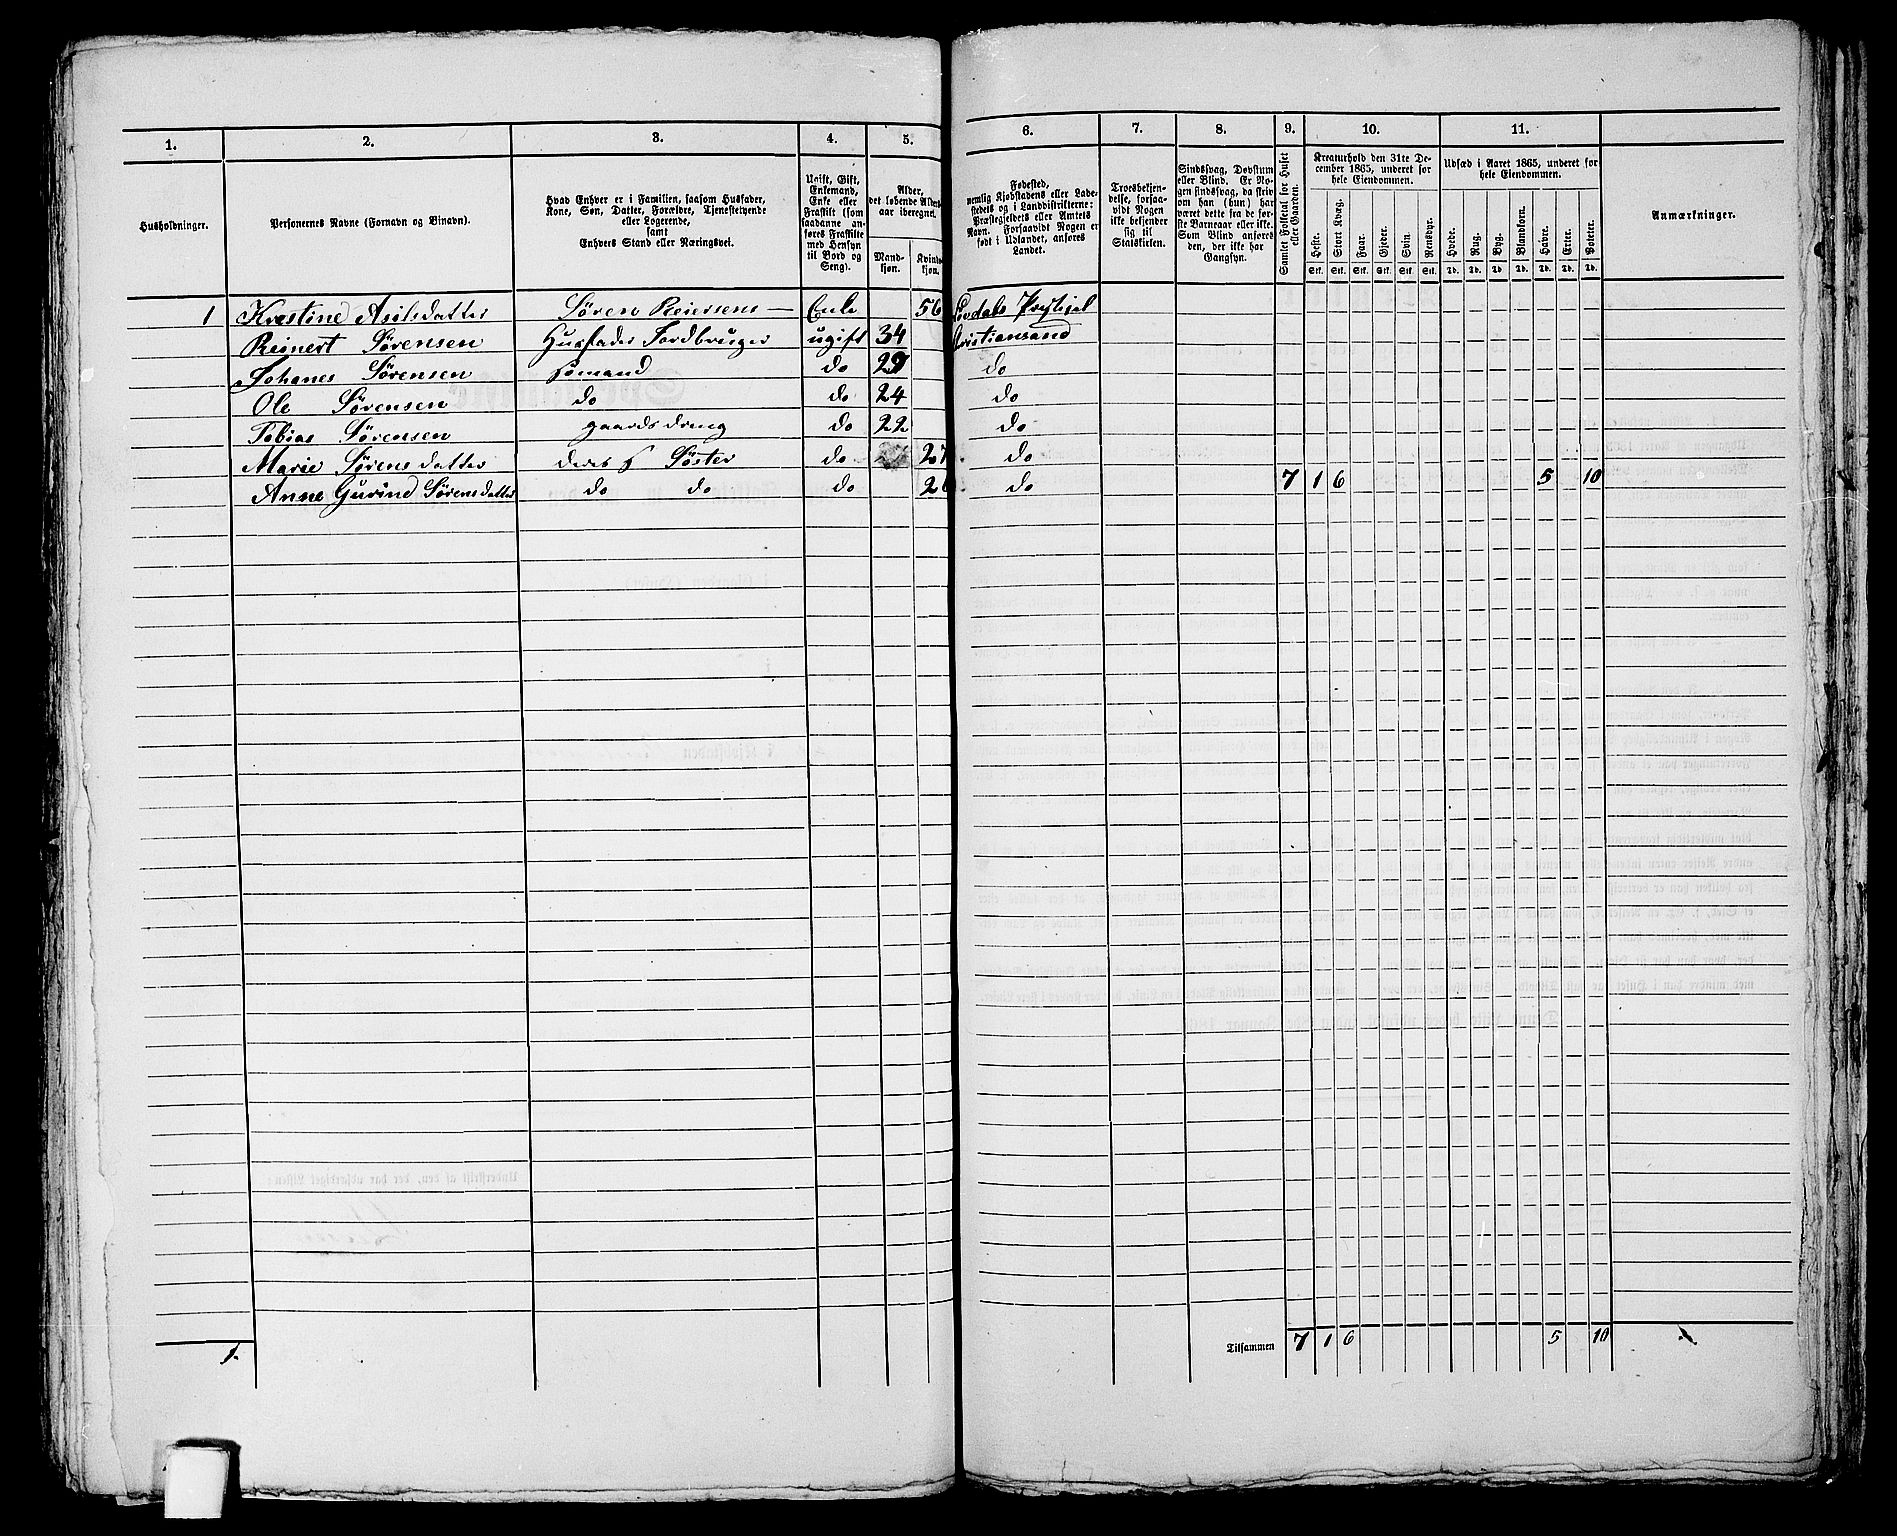 1. 2. 3. 4. 5. 6. 7. 8. 9. 10. 11.
Husholdninger.
Personernes Navne (Fornavn og Binavn).
Hvad Enhver er i Familien, saasom Husfader,
Kone, Søn, Datter, Forældre, Tjenestetyende
eller Logerende,
samt
Enhvers Stand eller Næringsvei.
Ugift, Gift,
Enkemand,
Enke eller
Fraskilt (som
saadanne an-
føres Fraskilte
med Hensyn
til Bord og
Seng).
Alder,
det løbende Alders-
aar iberegnet.
Mand-
kjøn.
Kvinde-
kjøn.
Fødested,
nemlig Kjøbstadens eller Lade-
stedets og i Landdistrikterne:
Præstegjeldets eller Amtets
Navn. Forsaavidt Nogen er
født i Udlandet, anføres
Landet.
Troesbekjen-
delse, forsaa-
vidt Nogen
ikke bekjender
sig til
Statskirken.
Sindssvag, Døvstum
eller Blind. Er No-
gen sindssvag, da skriv
om han (hun) har
været dette fra de før-
ste Barneaar eller ikke.
Som Blind anføres
den, der ikke har
Gangsyn.
Samlet Folketal for Huset
eller Gaarden.
Kreaturhold den 31te De-
cember 1865, underet for
hele Eiendommen.
Heste. Stort Kvæg. Faar. Gjeder. Svin. Rensdyr.
Stk. Stk. Stk. Stk. Stk. Stk.
Udsæd i Aaret 1865, underet for
hele Eiendommen.
Hvede. Rug. Byg. Blandkorn. Havre. Erter. Poteter.
Td. Td. Td. Td. Td. Td. Td.
Anmærkninger.
1 Krestine Asilsdatter Søren Reiersens — Enke 56 Prgtigjel
Reinert Sørensen Jordbruger ugift 34 Kristiansand
Johanes Sørensen sømand do 29 do
Ole Sørensen do do 24 do
Tobias Sørensen gaardsdreng do 22 do
Marie Sørensdatter deres Søster do 27 do
Anne Gurine Sørensdatter do do do do 7 1 6 5 10
1. Tilsammen 7 1 6 5 10